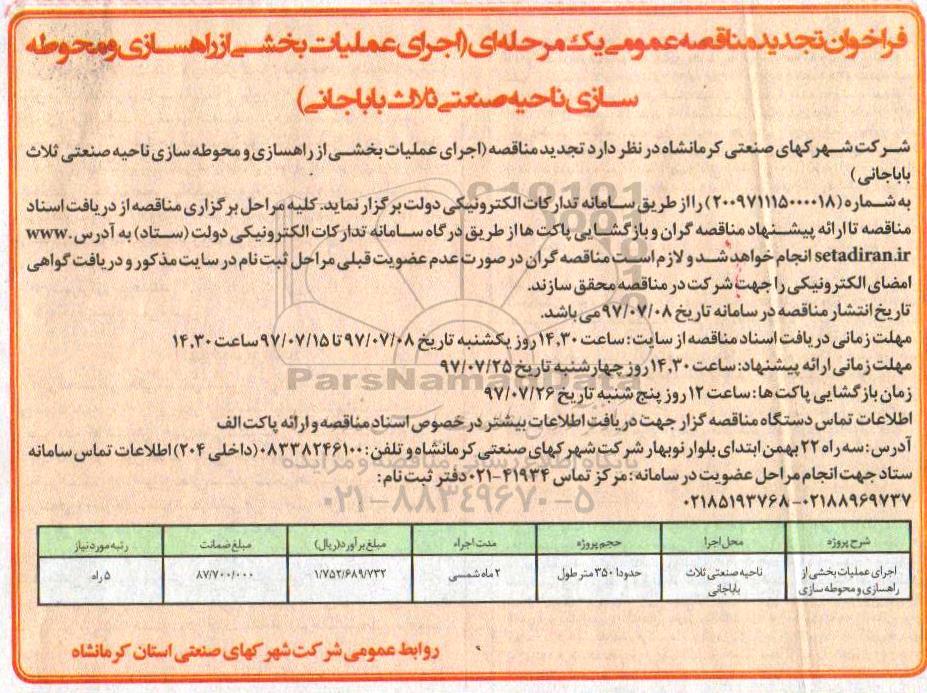 فراخوان تجدید مناقصه عمومی یک مرحله‌ای (اجرای عملیات بخشی از راهسازی و محوطه
سازی ناحیه صنعتی ثلاث باباجانی)
شرکت شهرکهای صنعتی کرمانشاه در نظر دارد تجدید مناقصه (اجرای عملیات بخشی از راهسازی و محوطه سازی ناحیه صنعتی ثلاث
باباجانی)
به شماره (۲۰۰۹۷۱۱۱۵۰۰۰۰۱۸) را از طریق سامانه تدارکات الکترونیکی دولت برگزار نماید. کلیه مراحل برگزاری مناقصه از دریافت اسناد
مناقصه تا ارائه پیشنهاد مناقصه گران و بازگشایی پاکت ها از طریق درگاه سامانه تدارکات الکترونیکی دولت (ستاد) به آدرس .www
setadiran.ir انجام خواهد شد و لازم است مناقصه گران در صورت عدم عضویت قبلی مراحل ثبت نام در سایت مذکور و دریافت گواهی
امضای الکترونیکی را جهت شرکت در مناقصه محقق سازند.
تاریخ انتشار مناقصه در سامانه تاریخ ۹۷/۰۷/۰۸ می باشد.
مهلت زمانی دریافت اسناد مناقصه از سایت: ساعت ۱۴,۳۰ روز یکشنبه تاریخ ۹۷/۰۷/۰۸ تا ۹۷/۰۷/۱۵ ساعت ۱۴,۳۰
مهلت زمانی ارائه پیشنهاد: ساعت ۱۴,۳۰ روز چهارشنبه تاریخ ۹۷/۰۷/۲۵
زمان بازگشایی پاکت ها: ساعت ۱۲ روز پنج شنبه تاریخ ۹۷/۰۷/۲۶
اطلاعات تماس دستگاه مناقصه گزار جهت دریافت اطلاعات بیشتر در خصوص اسناد مناقصه و ارائه پاکت الف
آدرس: سه راه ۲۲ بهمن ابتدای بلوار نوبهار شرکت شهرکهای صنعتی کرمانشاه و تلفن: ۰۸۳۳۸۲۴۶۱۰۰ (داخلی ۲۰۴) اطلاعات تماس سامانه
ستاد جهت انجام مراحل عضویت در سامانه: مرکز تماس ۴۱۹۳۴-۰۲۱ دفتر ثبت نام:
۰۲۱۸۸۹۶۹۷۳۷-۰۲۱۸۵۱۹۳۷۶۸
ParsNamadData
۰۲۱-۸۸۳۴۹۶۷۰-۵
شرح پروژه محل اجرا حجم پروژه مدت اجراء مبلغ برآورد(ریال) مبلغ ضمانت رتبه مورد نیاز
اجرای عملیات بخشی از ناحیه صنعتی ثلاث حدودا ۳۵۰ متر طول ۲ ماه شمسی ۱/۷۵۲/۶۸۹/۷۳۲ ۸۷/۷۰۰/۰۰۰ ۵ راه
راهسازی و محوطه سازی باباجانی
روابط عمومی شرکت شهرکهای صنعتی استان کرمانشاه